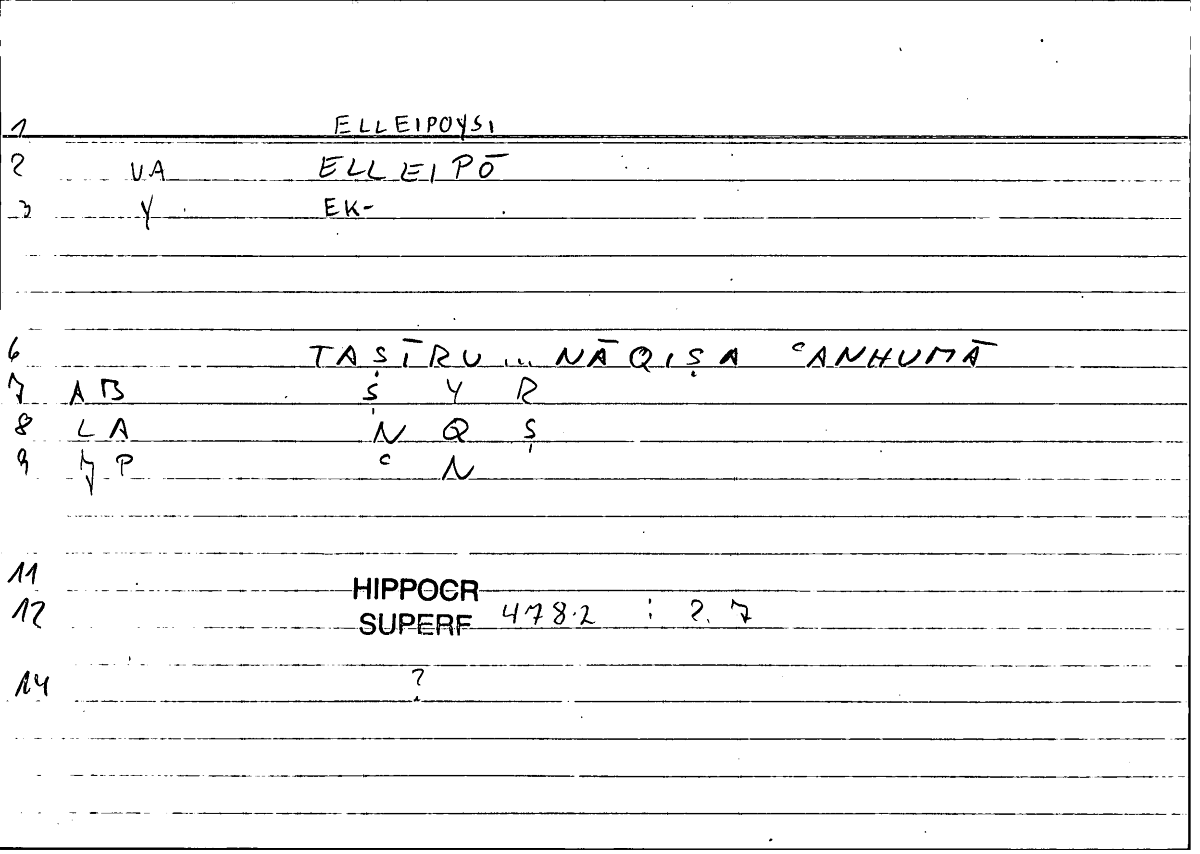 1 ELLEIPOYSI
2 VA ELLEIPŌ
3 Y EK-
6 TAṢĪRU ... NĀQIṢA ᶜANHUMĀ
7 AB Ṣ Y R
8 LA N Q Ṣ
9 JP ᶜ N
11 HIPPOCR
12 SUPERF 478.2 : 2.7
14 ?